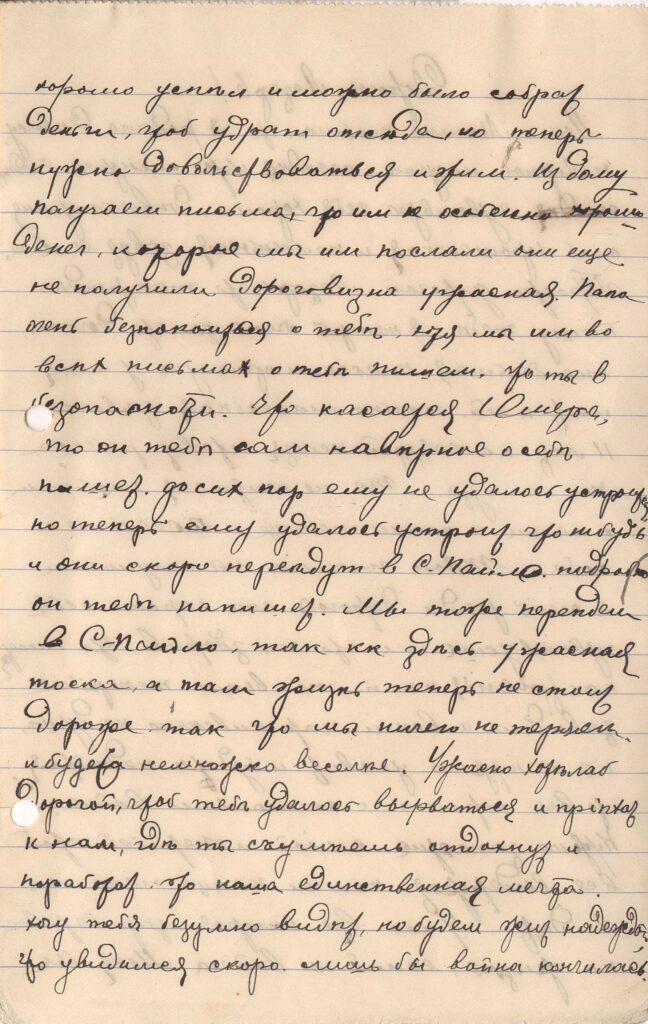 хорошо успѣл и можно было собрат
деньги, чтоб удрат отсюда, но теперь
нужно довольствоваться и этим. Из дому
получаем письма, что им не особенно хорошо
денег, которые мы им послали они еще
не получили дороговизна ужасная. Папа
очень безпокоится о тебѣ, хотя мы им во
всѣх письмах о тебѣ пишем, что ты в
безопасности. Что касается
то он тебѣ сам навѣрное о себѣ
пишет. до сих пор ему не удалось устроится
но теперь ему удалось устроит что нибудь
и они скоро переѣдут в С.-Пауло. подробно
он тебѣ напишет. Мы тоже переѣдем
в С-Пауло, так как здѣсь ужасная
тоска, а там жизнь теперь не стоит
дороже так что мы ничего не теряем.
и будет немножко веселѣе. Ужасно хотѣлаб
дорогой, чтоб тебѣ удалось вырваться и пріѣхат
к нам, гдѣ ты съумѣешь отдохнут и
поработат. это наша единственная мечта.
хочу тебя безумно видѣт, но будем жит надеждой,
что увидимся скоро. лишь бы война кончилась.